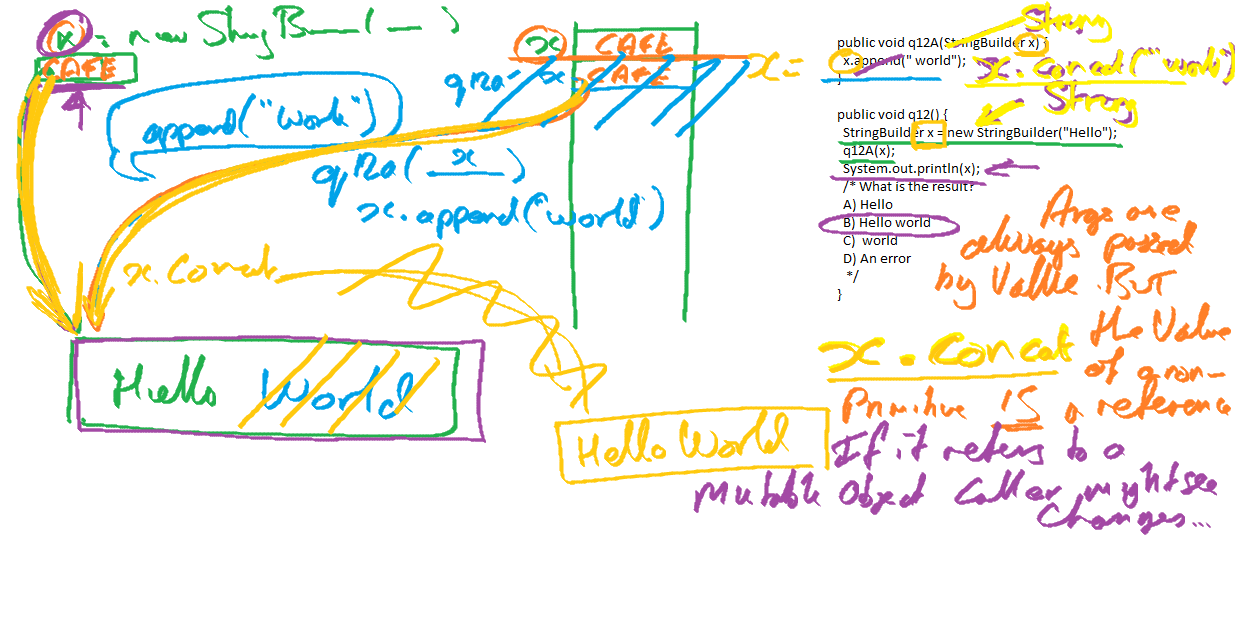 x = new StringB (
CAFE
append("World")
x CAFE
q12a x CAFE
x =
q12a( x )
x.append("world")
x.concat
Hello World
Hello World
String
public void q12A(StringBuilder x) {
x.append(" world");
}
x.concat("World")
String
public void q12() {
StringBuilder x = new StringBuilder("Hello");
q12A(x);
System.out.println(x);
/* What is the result?
A) Hello
B) Hello world
C)  world
D) An error
*/
}
Args are
always passed
by Value. But
the Value
of a non-
Primitive IS a reference
x.concat
If it refers to a
Mutable Object Caller might see
Changes...